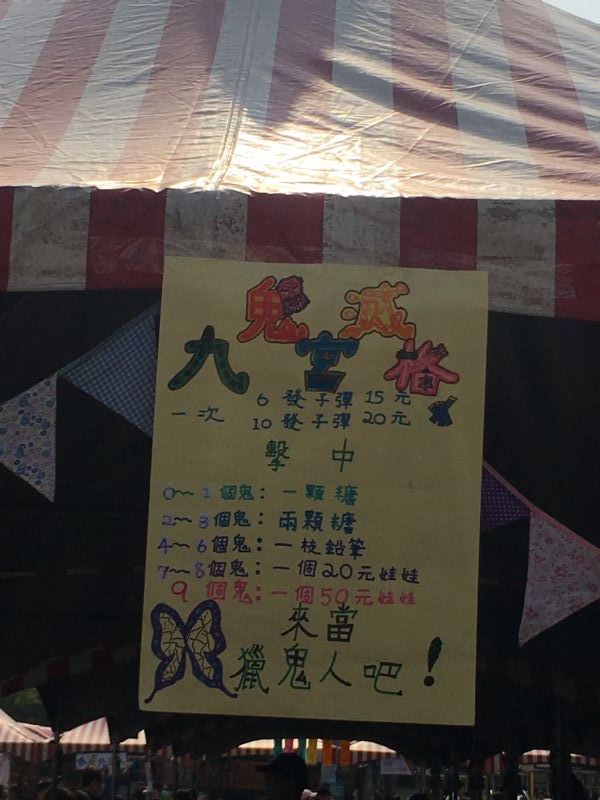 鬼滅
九宮格
一次 6發子彈15元
10發子彈20元
擊中
0~1個鬼:一顆糖
2~3個鬼:兩顆糖
4~6個鬼:一枝鉛筆
7~8個鬼:一個20元娃娃
9個鬼:一個50元娃娃
來當
獵鬼人吧!